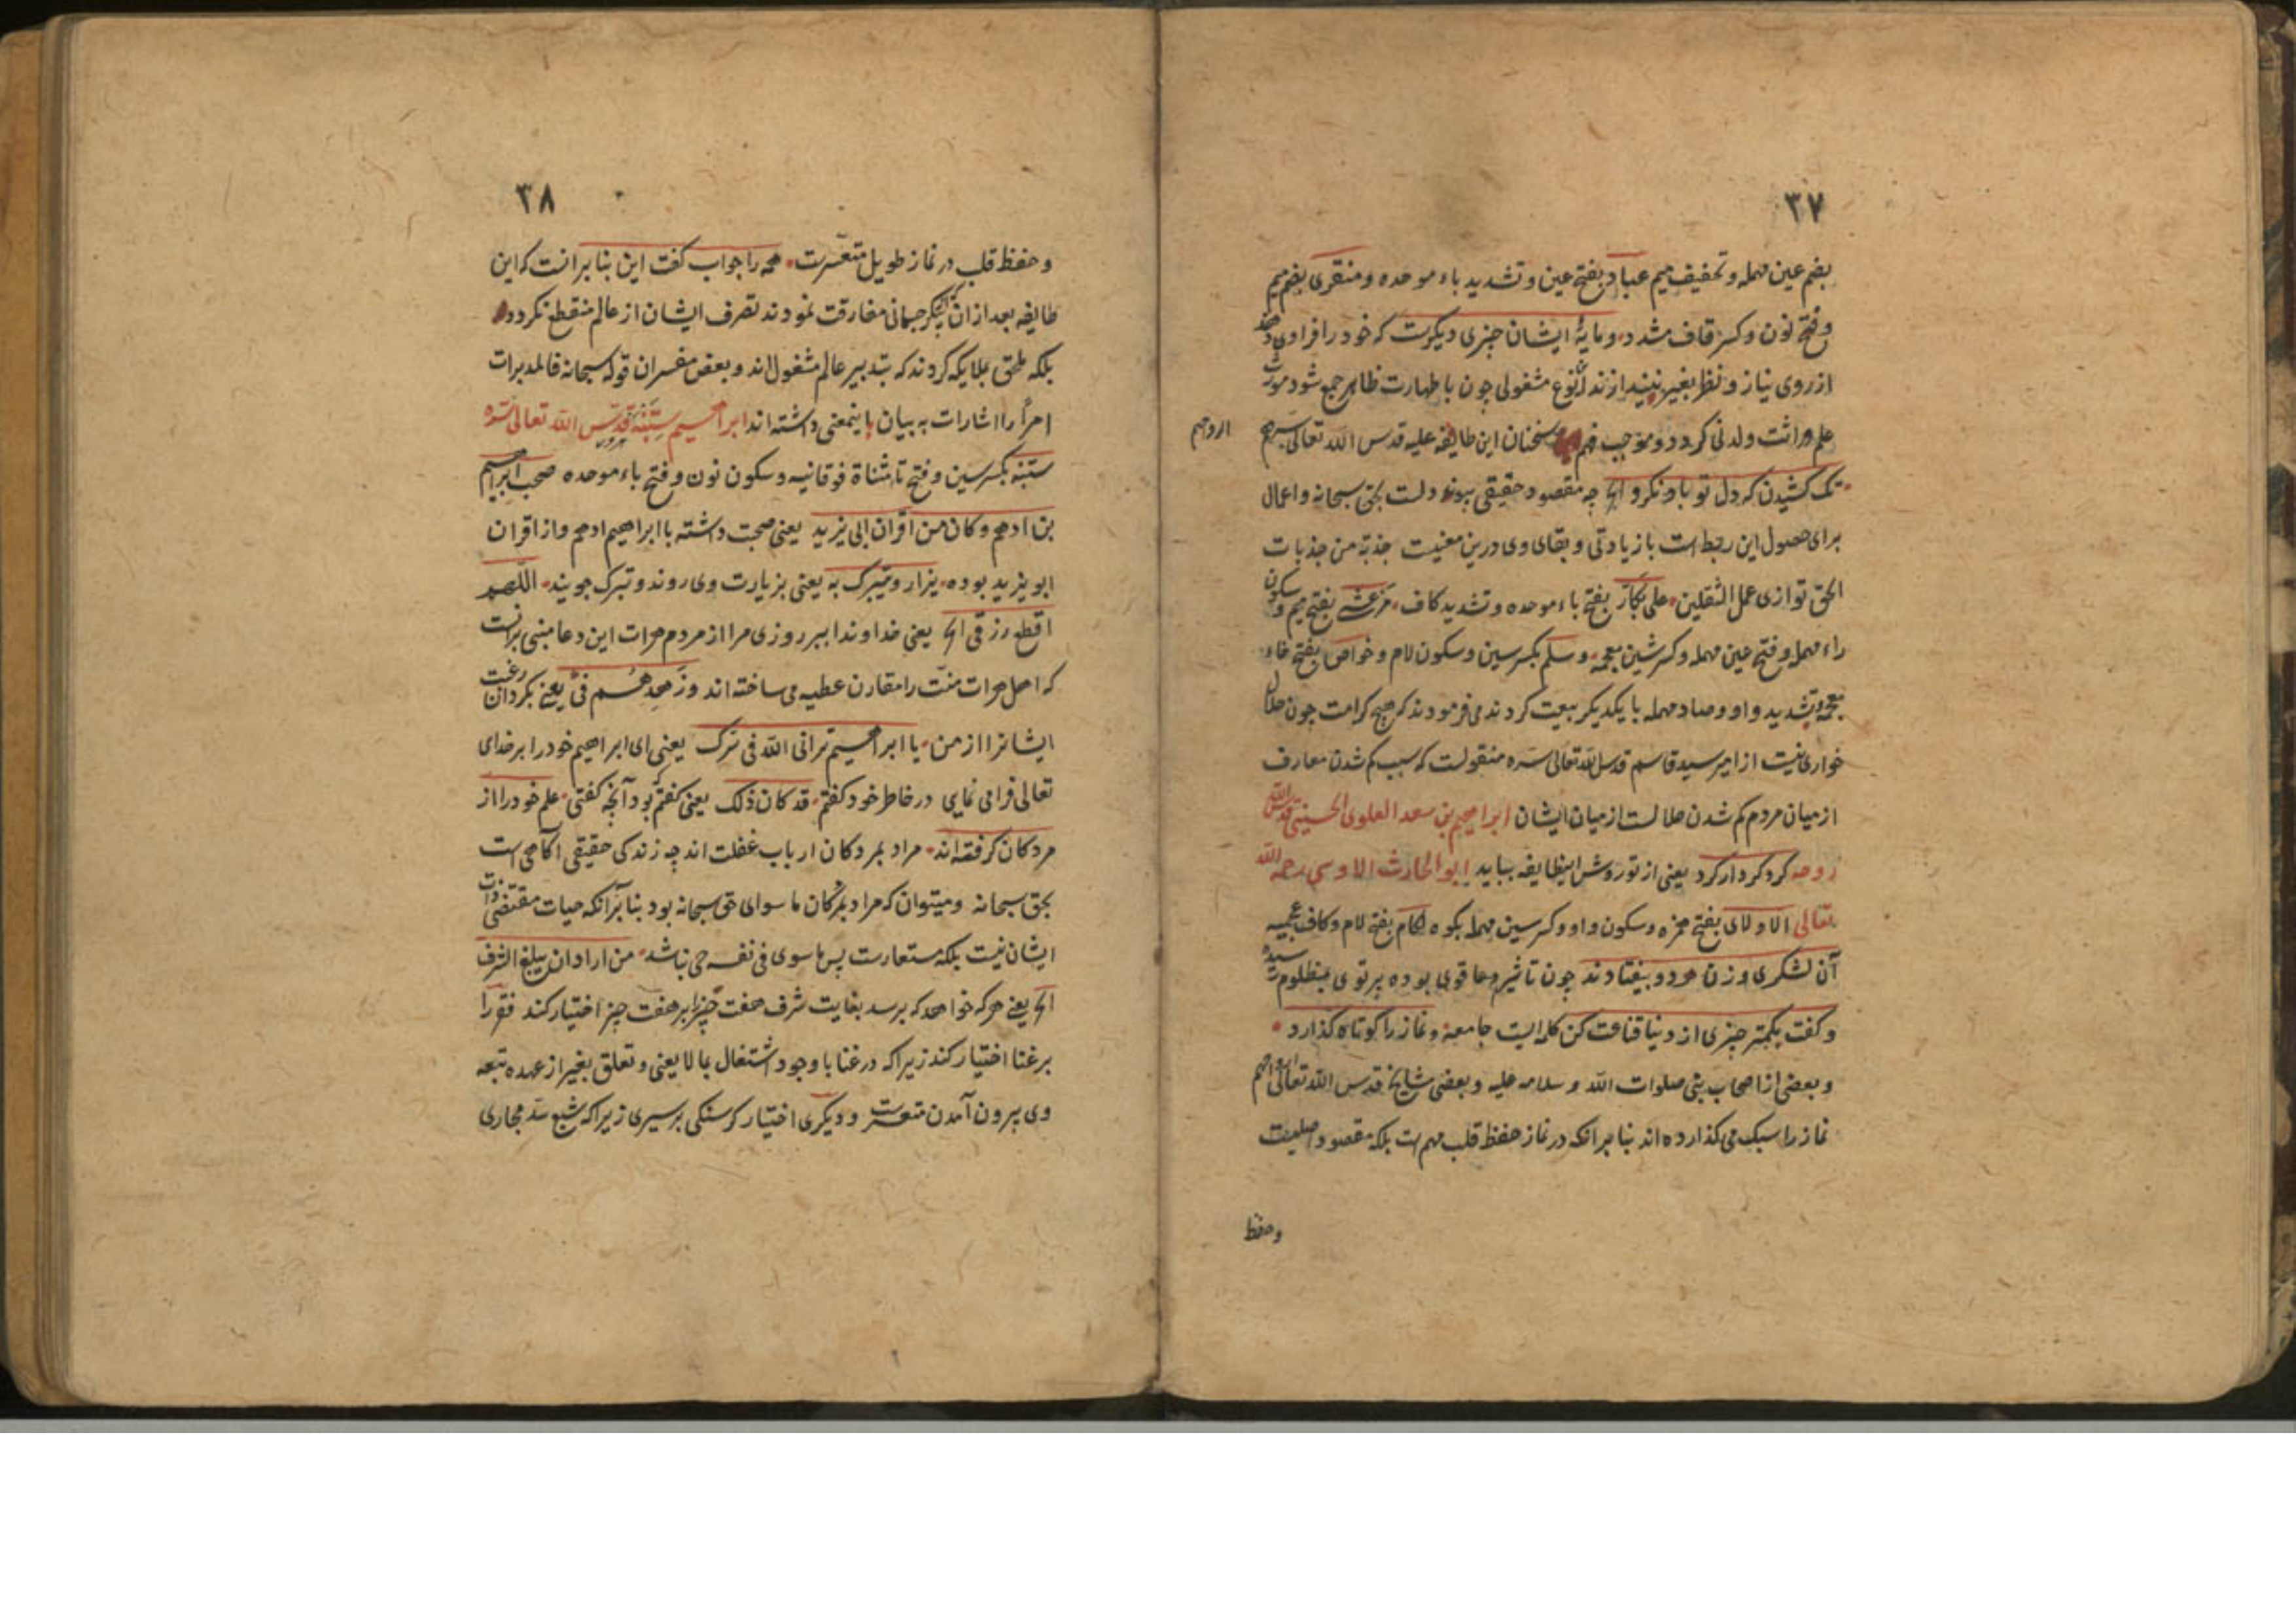 ۳۷
بضم عین مهمله و تخفیف میم عباد بفتح عین و تشدید باء موحده و منقری بضم میم
و فتح نون و کسر قاف مشدد و مایهٔ ایشان چیزی دیکرست که خود را فرا وی دهند
از روی نیاز و نظر بغیر نیندازند این نوع مشغولی چون با طهارت ظاهر جمع شود مورث
علم وراثت ولدنی کردد و موجب فهم سخنان این طایفه علیه قدس الله تعالی
ارواحهم
تک کشیدن که دل تو باو نکرد الخ چه مقصود حقیقی پیوند دلست بحق سبحانه و اعمال
برای حصول این ربط است با زیادتی و بقای وی درین معنیست جذبة من جذبات
الحق توازی عمل الثقلین علی بکار بفتح باء موحده و تشدید کاف مرعشی بفتح میم و سکون
راء مهمله و فتح عین مهمله و کسر شین معجمه و سلم بکسر سین و سکون لام و خواص بفتح خاء
معجمه و تشدید واو و صاد مهمله با یکدیکر بیعت کردند می فرمودند که هیچ کرامت چون حلال
خواری نیست از امیر سید قاسم قدس الله تعالی سره منقولست که سبب کم شدن معارف
از میان مردم کم شدن حلالست از میان ایشان ابراهیم بن سعد العلوی الحسینی قدس الله
روحه کرد کردار کرد یعنی از تو روش این طایفه بیاید ابو الحارث الاوسی رحمه الله
تعالی الاولای بفتح همزه و سکون واو و کسر سین مهمله بکوه لکام بفتح لام و کاف عجمیه
آن لشکری و زن هر دو بیفتادند چون تاثیر دعا قوی بوده پرتوی بمظلوم رسیده
و کفت بکمتر چیزی از دنیا قناعت کن کلمه ایست جامعه و نماز را کوتاه کذارد
و بعضی از اصحاب نبی صلوات الله و سلامه علیه و بعضی مشایخ قدس الله تعالی ارواحهم
نماز را سبک می کذارده اند بنا بر آنکه در نماز حفظ قلب مهم است بلکه مقصود اصلیست
وحفظ
۳۸
و حفظ قلب در نماز طویل متعسرست همه را جواب کفت این بنا بر انست که این
طایفه بعد از ان که پیکر جسمانی مفارقت نمودند تصرف ایشان از عالم منقطع نکردد
بلکه ملحق بملایکه کردند که بتدبیر عالم مشغول اند و بعض مفسران قوله سبحانه فالمدبرات
امراً را اشارات به بیان اینمعنی داشته اند ابراهیم ستنبه قدس الله تعالی سره
ستنبه بکسر سین و فتح تاء مثناة فوقانیه و سکون نون و فتح باء موحده صحب ابراهیم
بن ادهم و کان من اقران ابی یزید یعنی صحبت داشته با ابراهیم ادهم و از اقران
ابو یزید بوده یزار و یتبرک به یعنی بزیارت وی روند و تبرک جویند اللهم
اقطع رزقی الخ یعنی خداوندا ببر روزی مرا از مردم هرات این دعا مبنی برانست
که اهل هرات منت را مقارن عطیه می ساخته اند و زهدهم فیّ یعنی بکردان رغبت
ایشانرا از من یا ابراهیم ترانی الله فی سرک یعنی ای ابراهیم خود را بر خدای
تعالی فرامی نمایی در خاطر خود کفتم قد کان ذلک یعنی کفتم که بود آنچه کفتی علم خود را از
مردکان کرفته اند مراد بمردکان ارباب غفلت اند چه زندکی حقیقی آکاهی است
بحق سبحانه و میتوان که مراد بمردکان ما سوای حق سبحانه بود بنا بر آنکه حیات مقتضی ذات
ایشان نیست بلکه مستعارست پس ما سوی فی نفسه حی نباشد من اراد ان یبلغ الشرف
الخ یعنی هر که خواهد که برسد بغایت شرف هفت چیز را بر هفت چیز اختیار کند فقر را
بر غنا اختیار کند زیرا که در غنا با وجود اشتغال بما لا یعنی و تعلق بغیر از عهده تبعه
وی بیرون آمدن متعسرست و دیکری اختیار کرسنکی بر سیری زیرا که شبع سد مجاری